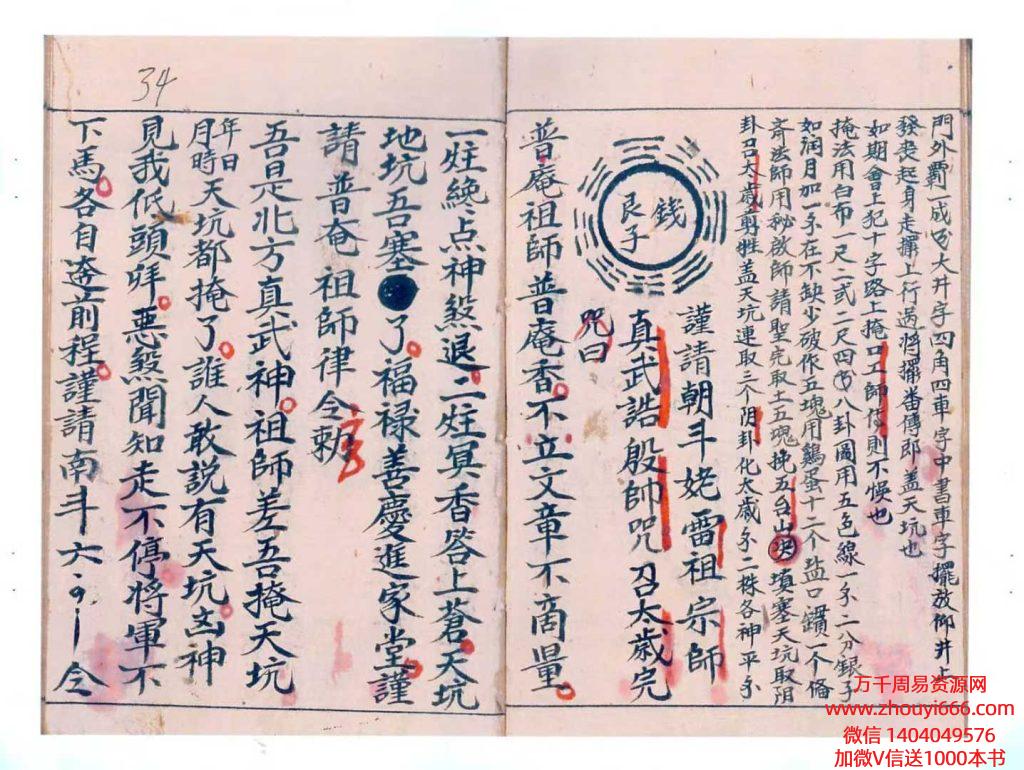 門外霸一成多大井字四角四車字中書車字擺放柳井上
發喪起身走擺上行過將擺番傳即盖天坑也
如期會上犯十字路上掩口工師傅則不悮也
掩法用白布一尺二弍二尺四寸八卦圖用五色線一子二分銀子
如润月加一子在不缺少破作五塊用鷄蛋十二个盐口鑽一个俻
斎法師用秘啟師請聖完取土五塊挽五台山決填塞天坑取阻
卦召太歲剪牲盖天坑連取三个阴卦化太歲子二株各神平子
錢
艮子
謹請朝斗姥雷祖宗師
真武誥殷帥咒召太歲完
咒曰
普庵祖師普庵香不立文章不商量
34
一炷绕点神煞退二炷冥香答上蒼天坑
地坑吾塞了福禄善慶進家堂謹
請普奄祖師律令勅
吾是北方真武神祖師差吾掩天坑
年月日時天坑都掩了誰人敢説有天坑凶神
見我低頭拜悪煞聞知走不停將軍不
下馬各自逩前程謹請南斗六令
万千周易资源网
www.zhouyi666.com
微信 1404049576
加微V信送1000本书